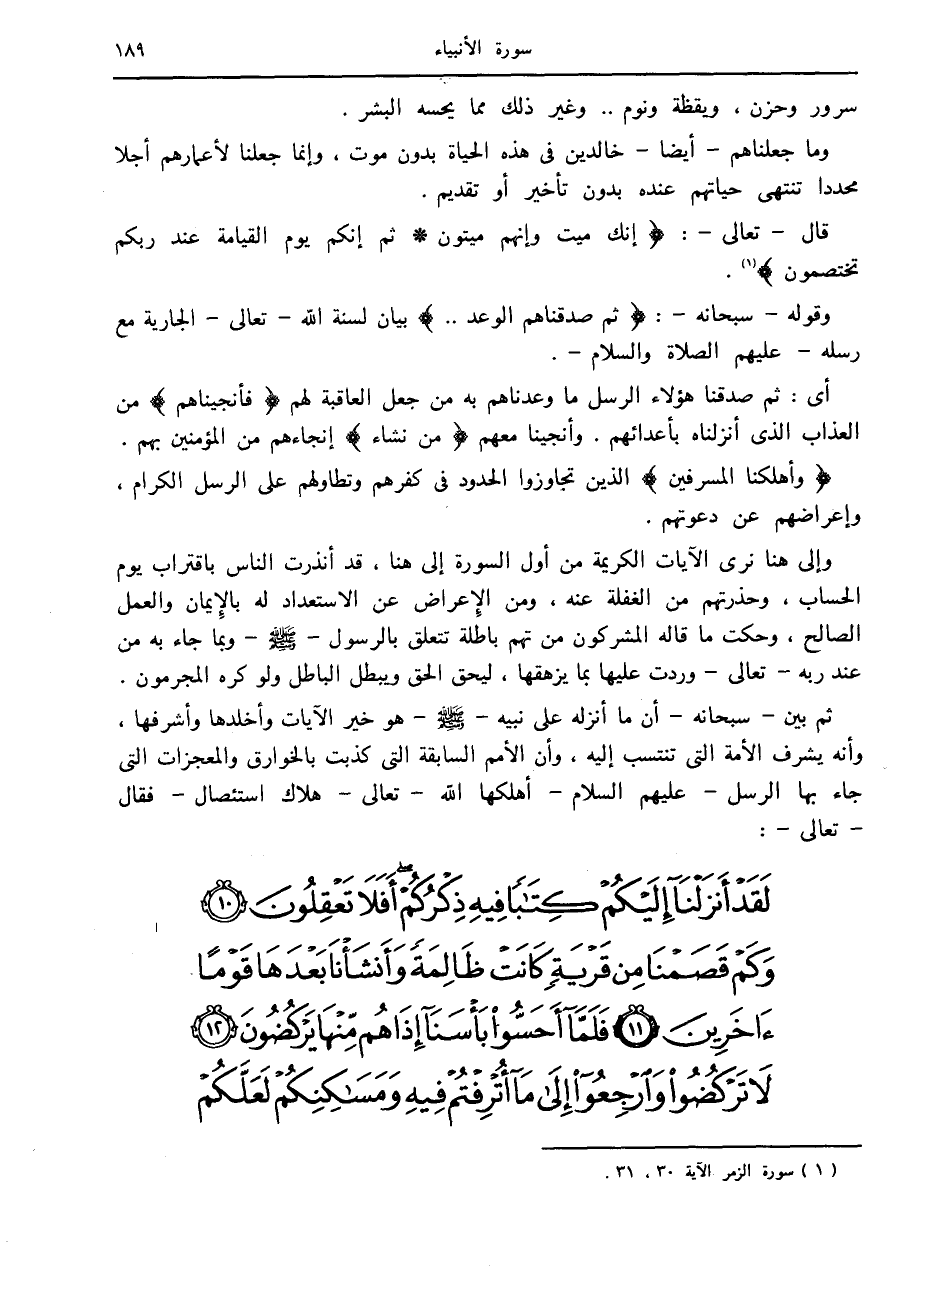 سورة الأنبياء ١٨٩
سرور وحزن ، ويقظة ونوم .. وغير ذلك مما يحسه البشر .
وما جعلناهم – أيضا – خالدين فى هذه الحياة بدون موت ، وإنما جعلنا لأعمارهم أجلا
محددا تنتهى حياتهم عنده بدون تأخير أو تقديم .
قال – تعالى – : ﴿ إنك ميت وإنهم ميتون * ثم إنكم يوم القيامة عند ربكم
تختصمون ﴾(١) .
وقوله – سبحانه – : ﴿ ثم صدقناهم الوعد .. ﴾ بيان لسنة الله – تعالى – الجارية مع
رسله – عليهم الصلاة والسلام – .
أى : ثم صدقنا هؤلاء الرسل ما وعدناهم به من جعل العاقبة لهم ﴿ فأنجيناهم ﴾ من
العذاب الذى أنزلناه بأعدائهم . وأنجينا معهم ﴿ من نشاء ﴾ إنجاءهم من المؤمنين بهم .
﴿ وأهلكنا المسرفين ﴾ الذين تجاوزوا الحدود فى كفرهم وتطاولهم على الرسل الكرام ،
وإعراضهم عن دعوتهم .
وإلى هنا نرى الآيات الكريمة من أول السورة إلى هنا ، قد أنذرت الناس باقتراب يوم
الحساب ، وحذرتهم من الغفلة عنه ، ومن الإعراض عن الاستعداد له بالإيمان والعمل
الصالح ، وحكت ما قاله المشركون من تهم باطلة تتعلق بالرسول – ﷺ – وبما جاء به من
عند ربه – تعالى – وردت عليها بما يزهقها ، ليحق الحق ويبطل الباطل ولو كره المجرمون .
ثم بين – سبحانه – أن ما أنزله على نبيه – ﷺ – هو خير الآيات وأخلدها وأشرفها ،
وأنه يشرف الأمة التى تنتسب إليه ، وأن الأمم السابقة التى كذبت بالخوارق والمعجزات التى
جاء بها الرسل – عليهم السلام – أهلكها الله – تعالى – هلاك استئصال – فقال
– تعالى – :
لَقَدْ أَنزَلْنَآ إِلَيْكُمْ كِتَٰبًا فِيهِ ذِكْرُكُمْ ۖ أَفَلَا تَعْقِلُونَ ﴿١٠﴾
وَكَمْ قَصَمْنَا مِن قَرْيَةٍ كَانَتْ ظَالِمَةً وَأَنشَأْنَا بَعْدَهَا قَوْمًا
ءَاخَرِينَ ﴿١١﴾ فَلَمَّآ أَحَسُّوا۟ بَأْسَنَآ إِذَا هُم مِّنْهَا يَرْكُضُونَ ﴿١٢﴾
لَا تَرْكُضُوا۟ وَٱرْجِعُوٓا۟ إِلَىٰ مَآ أُتْرِفْتُمْ فِيهِ وَمَسَٰكِنِكُمْ لَعَلَّكُمْ
(١) سورة الزمر الآية ٣٠ ، ٣١ .